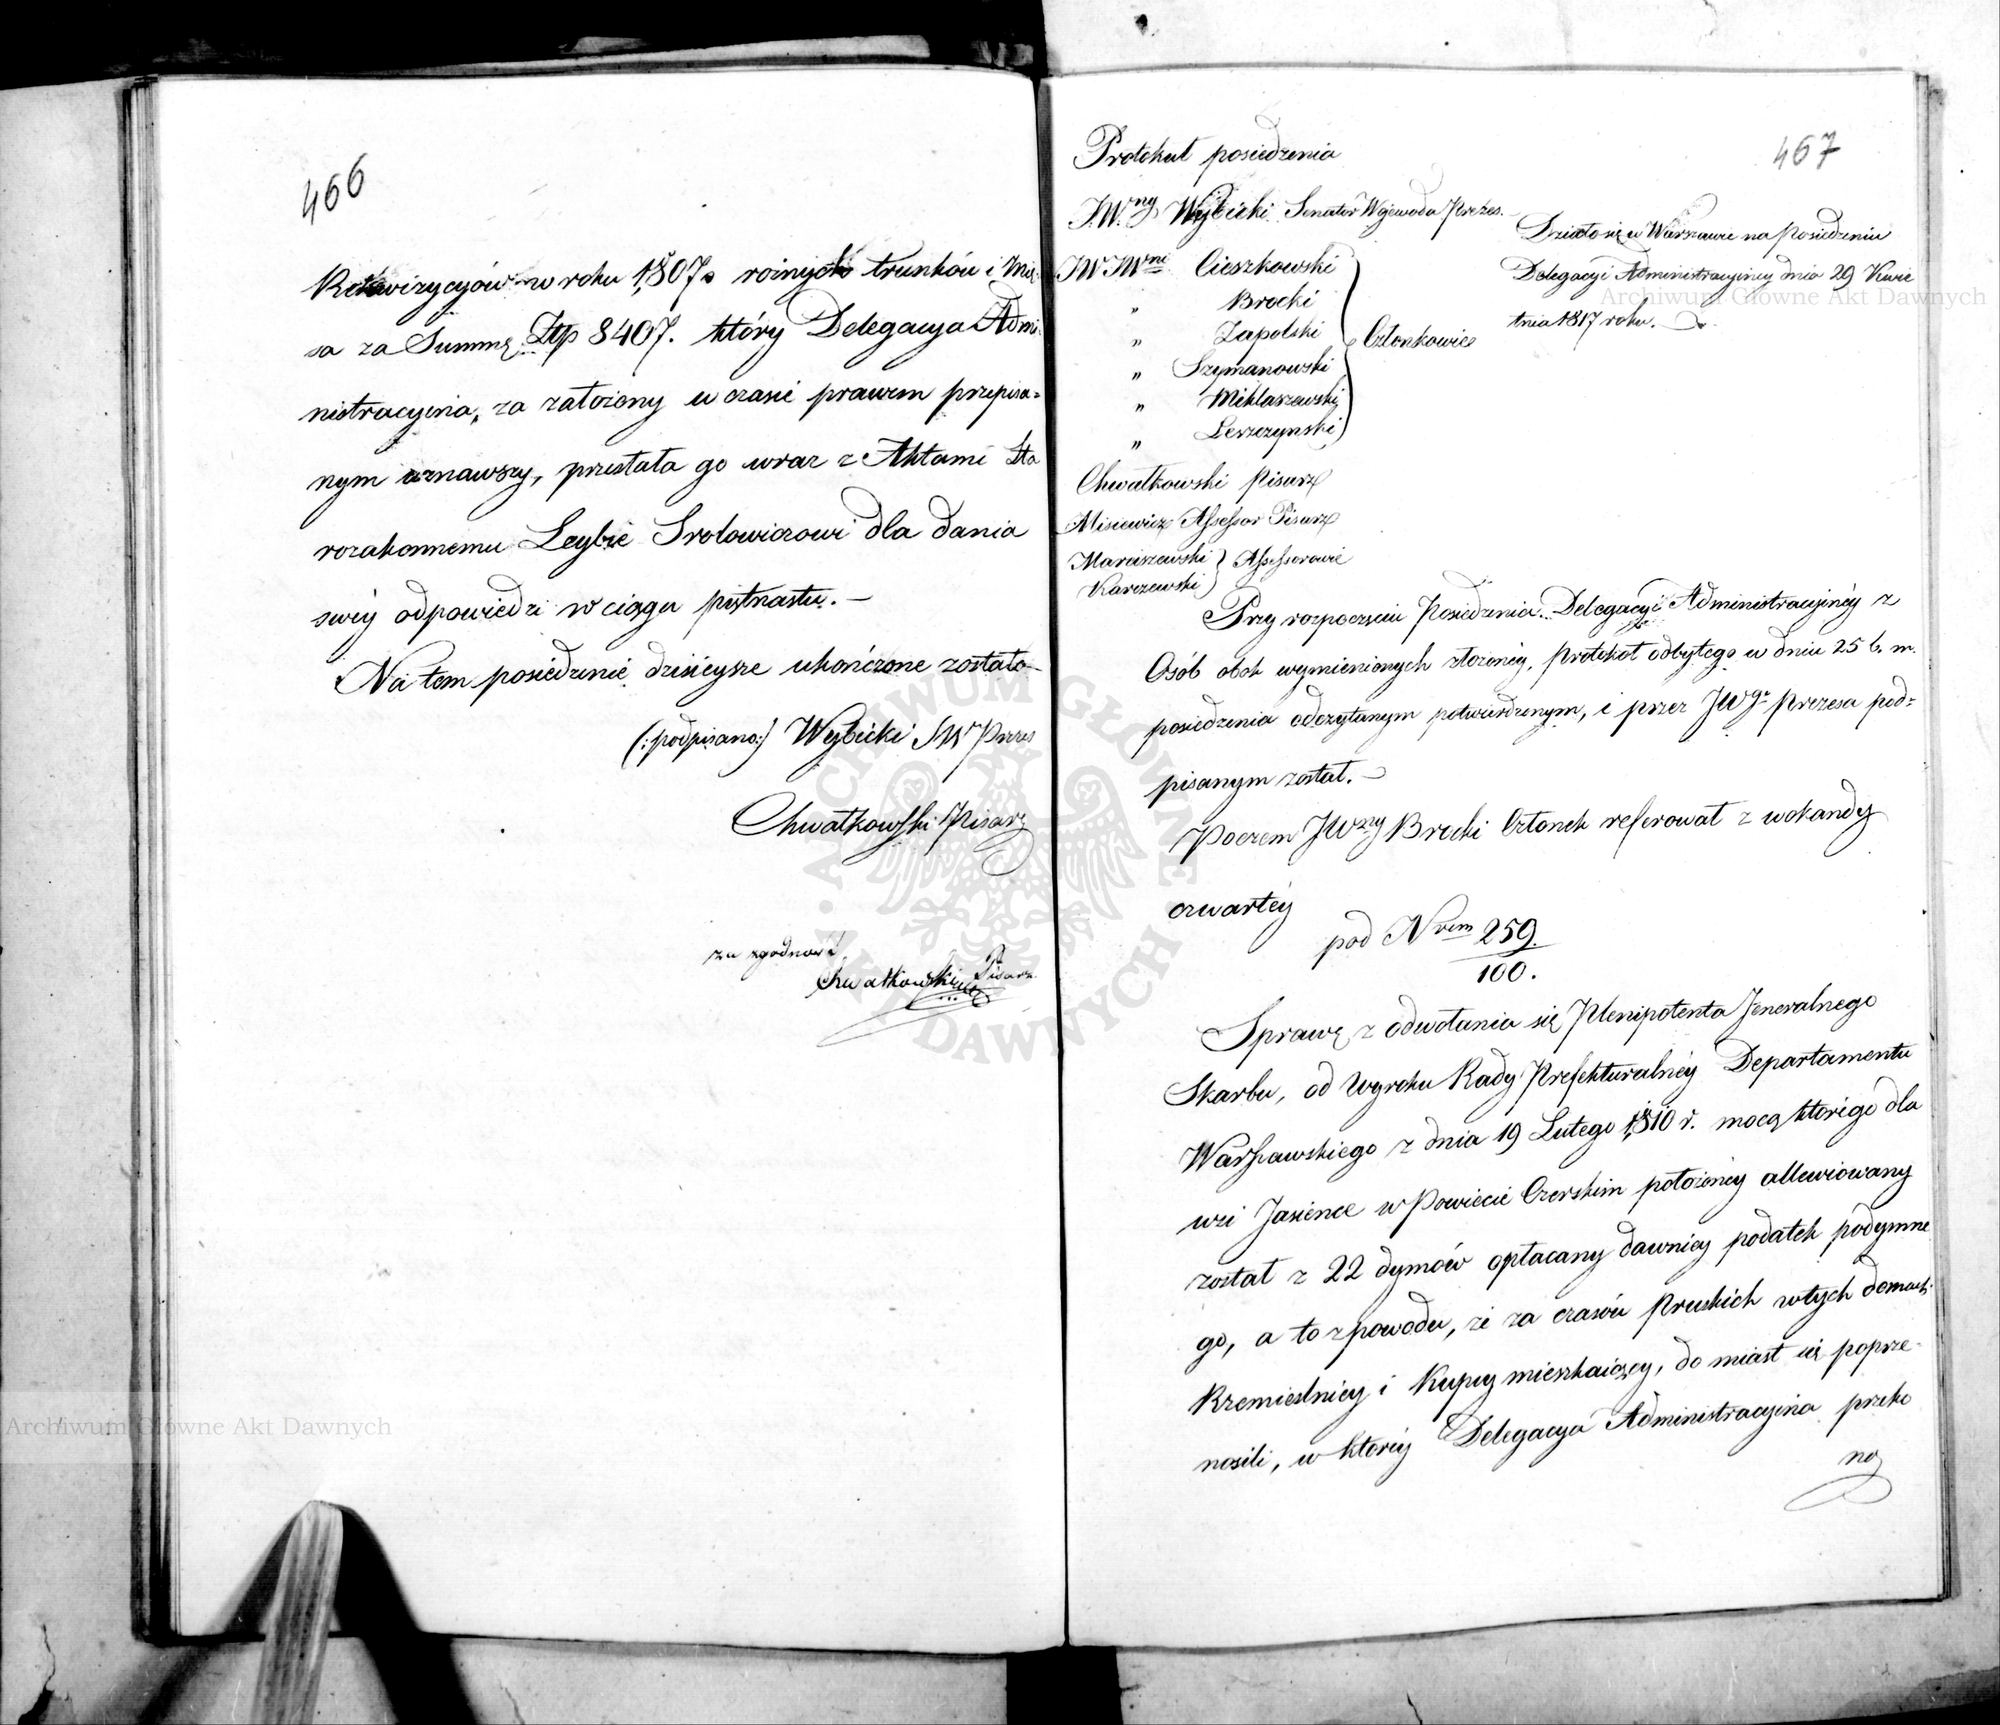 466
Rekwizycyów w roku 1807 rożnych trunków i Mię-
sa za Summę Złtp 8407. który Delegacya Admi-
nistracyina, za założony w czasie prawem przepisa-
nym uznawszy, przesłała go wraz z Aktami Sta
rozakonnemu Leybie Srolowiczowi dla dania
swéy odpowiedzi w ciągu piętnastu. —
Na tem posiedzenie dzisieysze ukończone zostało —
(: podpisano:) Wybicki SW Prezes
Chwałkowski Pisarz
za zgodność
Chwałkowski Pisarz
467
Protokuł posiedzenia
J.W.ny Wybicki Senator Wojewoda Prezes. —
JW JWni Cieszkowski
" Brocki
" Zapolski
" Szymanowski
" Miklaszewski
" Leszczynski
Członkowie
Chwałkowski Pisarz
Misiewicz Assessor Pisarz
Marciszewski
Karczewski
Assessorowie
Działo się w Warszawie na Posiedzeniu
Delegacyi Administracyiney dnia 29 Kwie
tnia 1817 roku.
Przy rozpoczęciu Posiedzenia Delegacyi Administracyinéy z
Osób obok wymienionych złożonéy, protokoł odbytego w dniu 25 b. m.
posiedzenia odczytanym potwierdzonym, i przez JWgo Prezesa pod-
pisanym został. —
Poczem JWny Brocki Członek referował z wokandy
czwartéy
pod Nrem 259.
100.
Sprawę z odwołania się Plenipotenta Jeneralnego
Skarbu, od Wyroku Rady Prefekturalnéy Departamentu
Warszawskiego z dnia 19 Lutego 1810 r. mocą którego dla
wsi Jasience w Powiecie Czerskim położonéy allewiowany
został z 22 dymów opłacany dawniéy podatek podymne
go, a to z powodu, że za czasów Pruskich w tych domach
Rzemieslnicy i Kupcy mieszkaiący, do miast się poprze-
nosili, w któréy Delegacya Administracyina przeko
na
Archiwum Główne Akt Dawnych
Archiwum Główne Akt Dawnych
ARCHIWUM GŁÓWNE AKT DAWNYCH